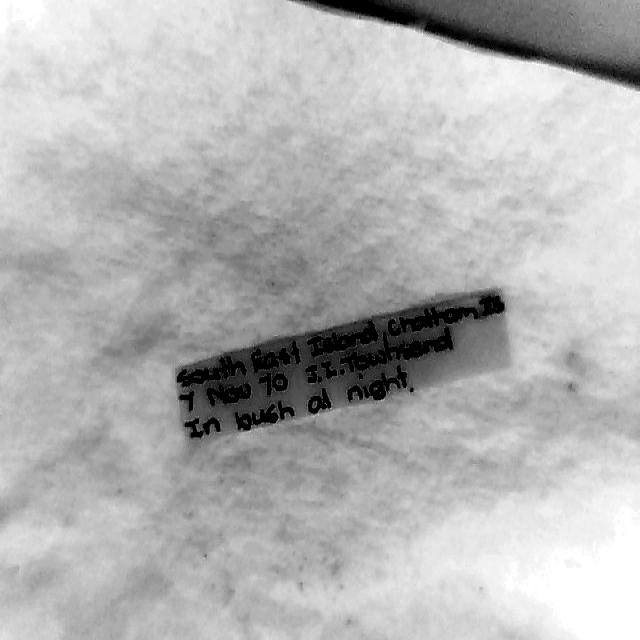 South East Island Chatham Is
7 Nov 70 J.I. Townsend
In bush at night.